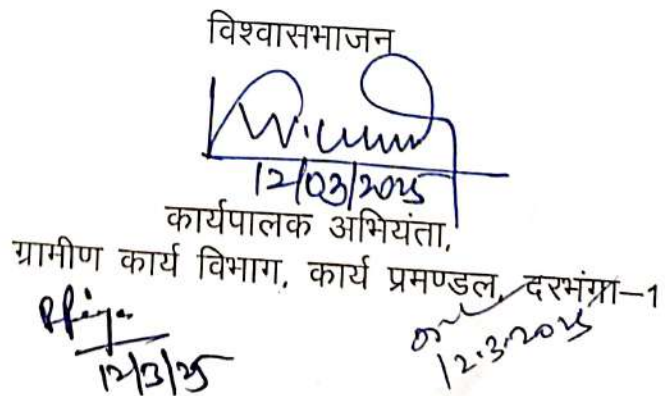 विश्वासभाजन
12/03/2025
कार्यपालक अभियंता,
ग्रामीण कार्य विभाग, कार्य प्रमण्डल, दरभंगा–1
12/3/25
12.3.2025